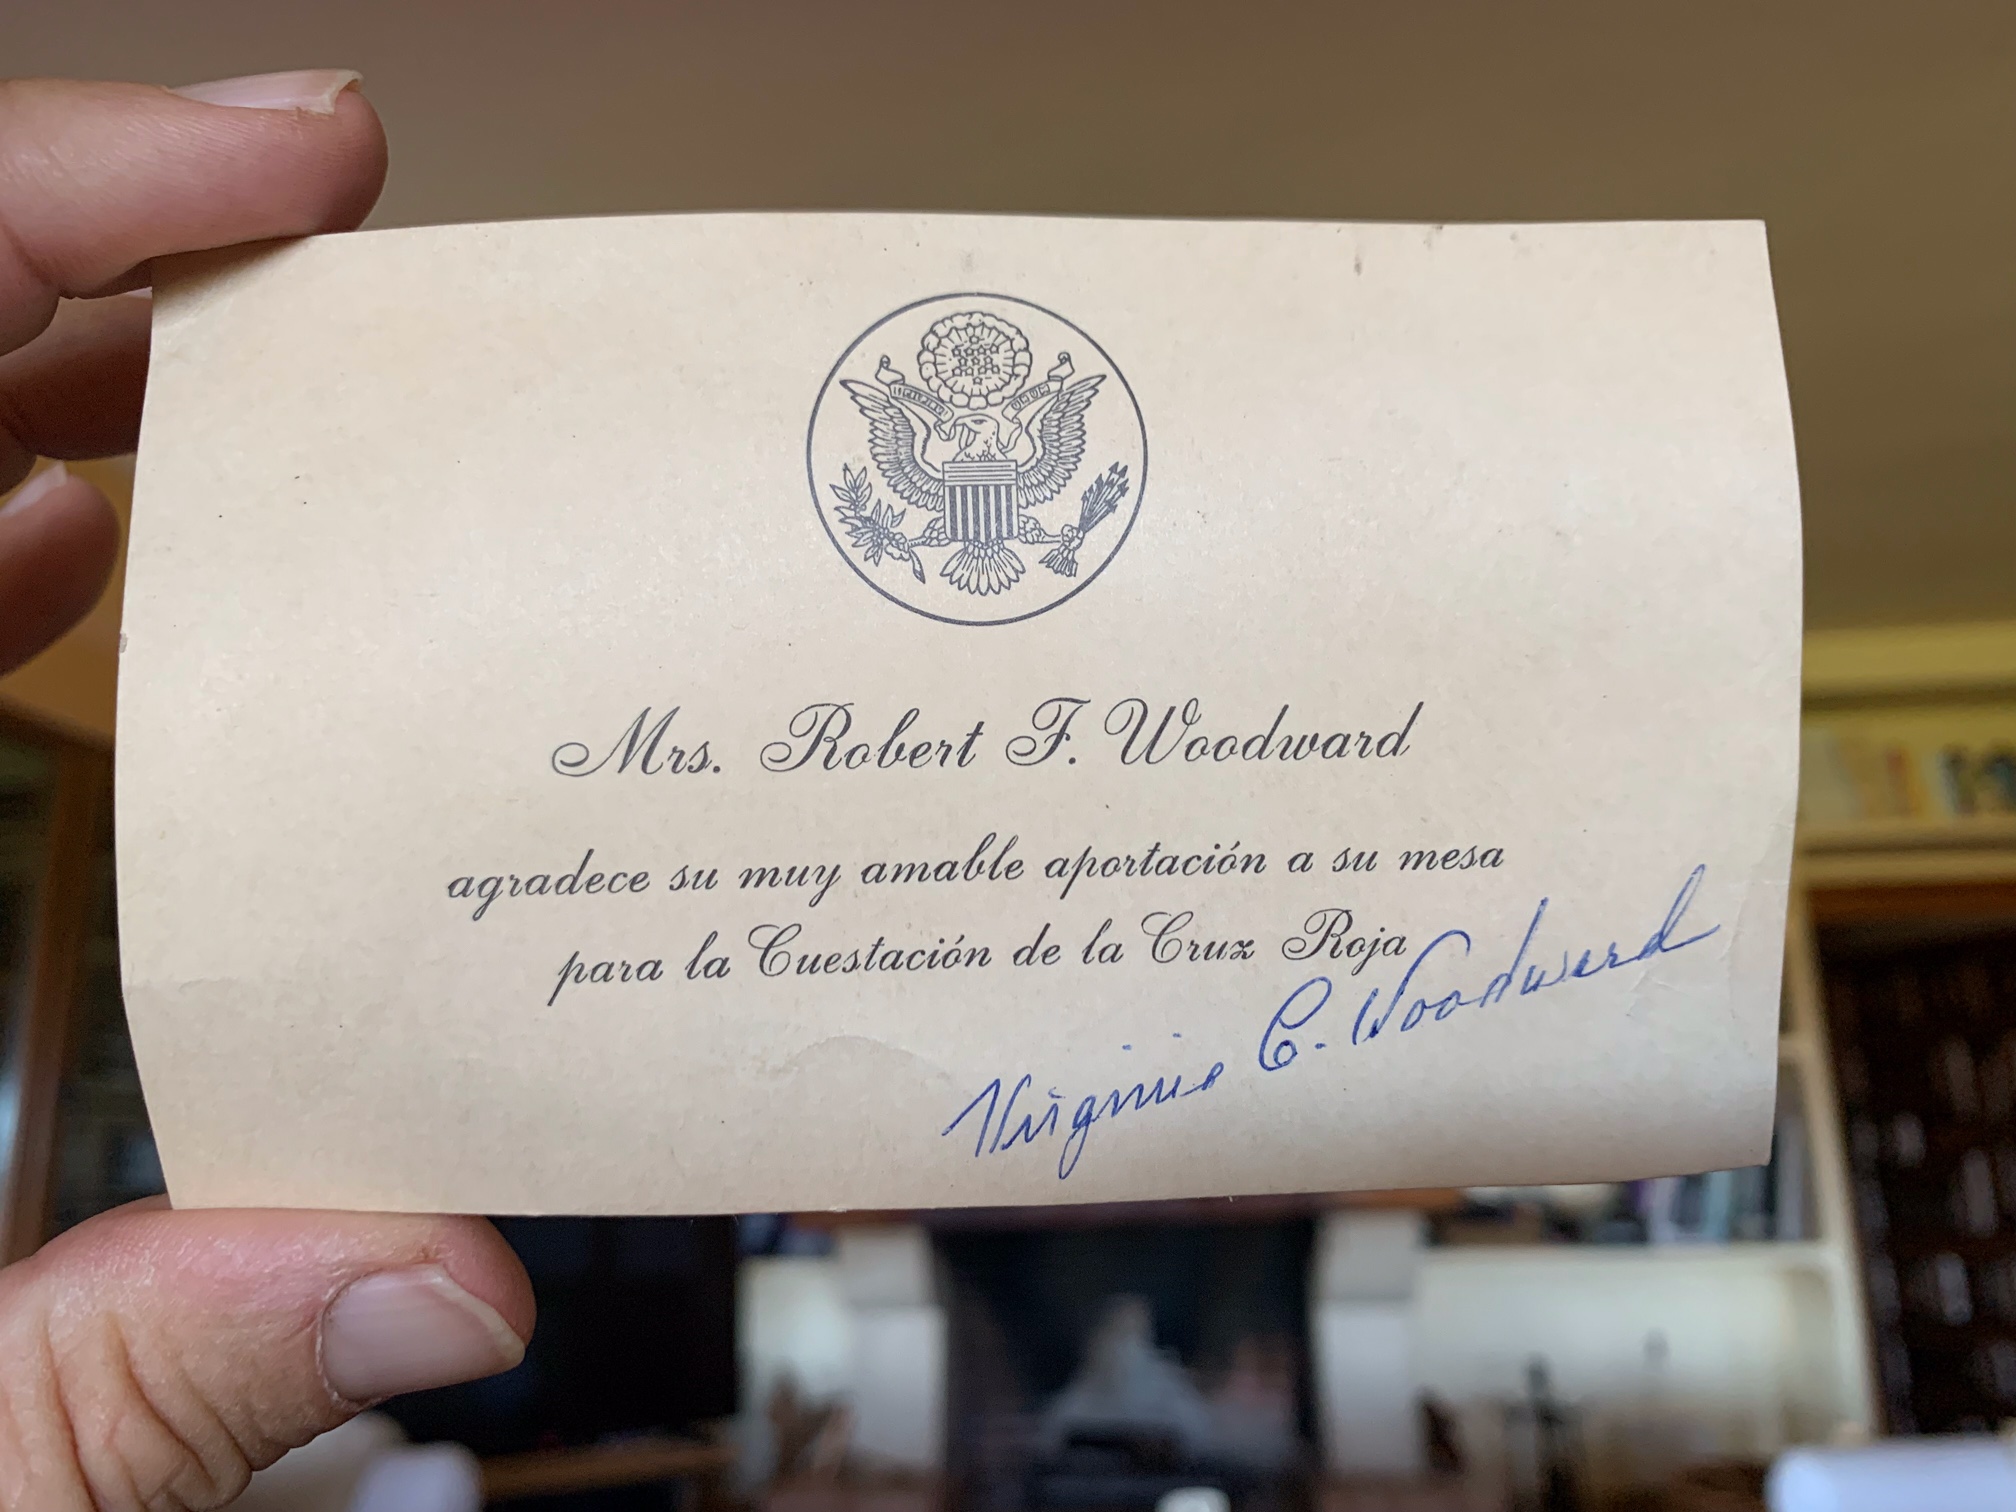 Mrs. Robert F. Woodward
agradece su muy amable aportación a su mesa
para la Cuestación de la Cruz Roja
Virginia C. Woodward